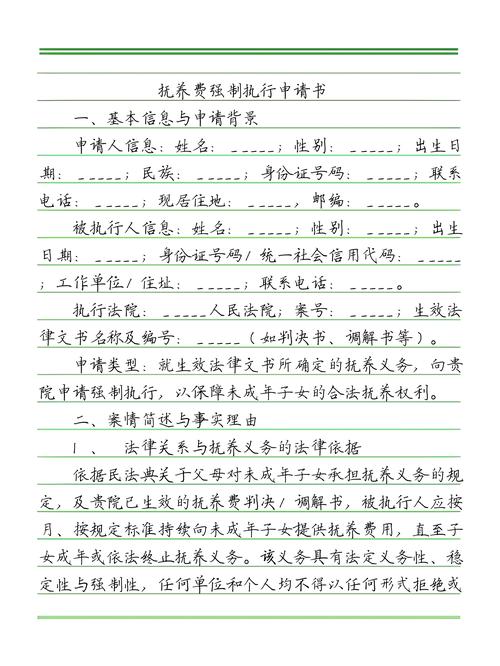 抚养费强制执行申请书
一、基本信息与申请背景
申请人信息：姓名： _____；性别： _____；出生日
期： _____；民族： _____；身份证号码： _____；联系
电话： _____；现居住地： _____，邮编： _____。
被执行人信息：姓名： _____；性别： _____；出生
日期： _____；身份证号码/统一社会信用代码： _____
；工作单位/住址： _____；联系电话： _____。
执行法院： _____人民法院；案号： _____；生效法
律文书名称及编号： _____（如判决书、调解书等）。
申请类型：就生效法律文书所确定的抚养义务，向贵
院申请强制执行，以保障未成年子女的合法抚养权利。
二、案情简述与事实理由
1、 法律关系与抚养义务的法律依据
依据民法典关于父母对未成年子女承担抚养义务的规
定，及贵院已生效的抚养费判决/调解书，被执行人应按
月、按规定标准持续向未成年子女提供抚养费用，直至子
女成年或依法终止抚养义务。该义务具有法定义务性、稳
定性与强制性，任何单位和个人均不得以任何形式拒绝或